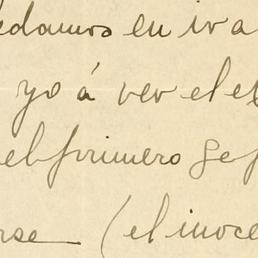 edamos en ir a
yo á ver el e
el primero Gef
rse (el inoce